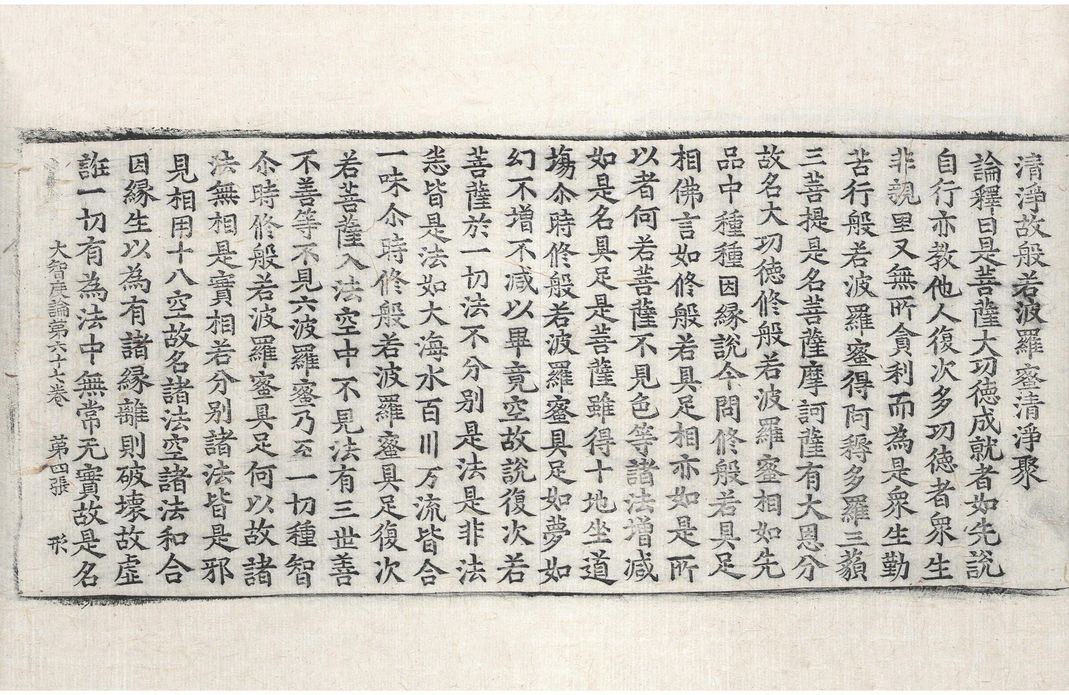 清淨故般若波羅蜜清淨聚
論釋曰是菩薩大功徳成就者如先說
自行亦教他人復次多功徳者衆生
非親里又無所貪利而為是衆生勤
苦行般若波羅蜜得阿耨多羅三藐
三菩提是名菩薩摩訶薩有大恩分
故名大功徳修般若波羅蜜相如先
品中種種因縁說今問修般若具足
相佛言如修般若具足相亦如是所
以者何若菩薩不見色等諸法增减
如是名具足是菩薩雖得十地坐道
塲尒時修般若波羅蜜具足如夢如
幻不增不减以畢竟空故說復次若
菩薩於一切法不分別是法是非法
悉皆是法如大海水百川万流皆合
一味尒時修般若波羅蜜具足復次
若菩薩入法空中不見法有三世善
不善等不見六波羅蜜乃至一切種智
尒時修般若波羅蜜具足何以故諸
法無相是實相若分別諸法皆是邪
見相用十八空故名諸法空諸法和合
因縁生以為有諸縁離則破壞故虛
誑一切有為法中無常无實故是名
大智度論第六十七卷　第四張　形